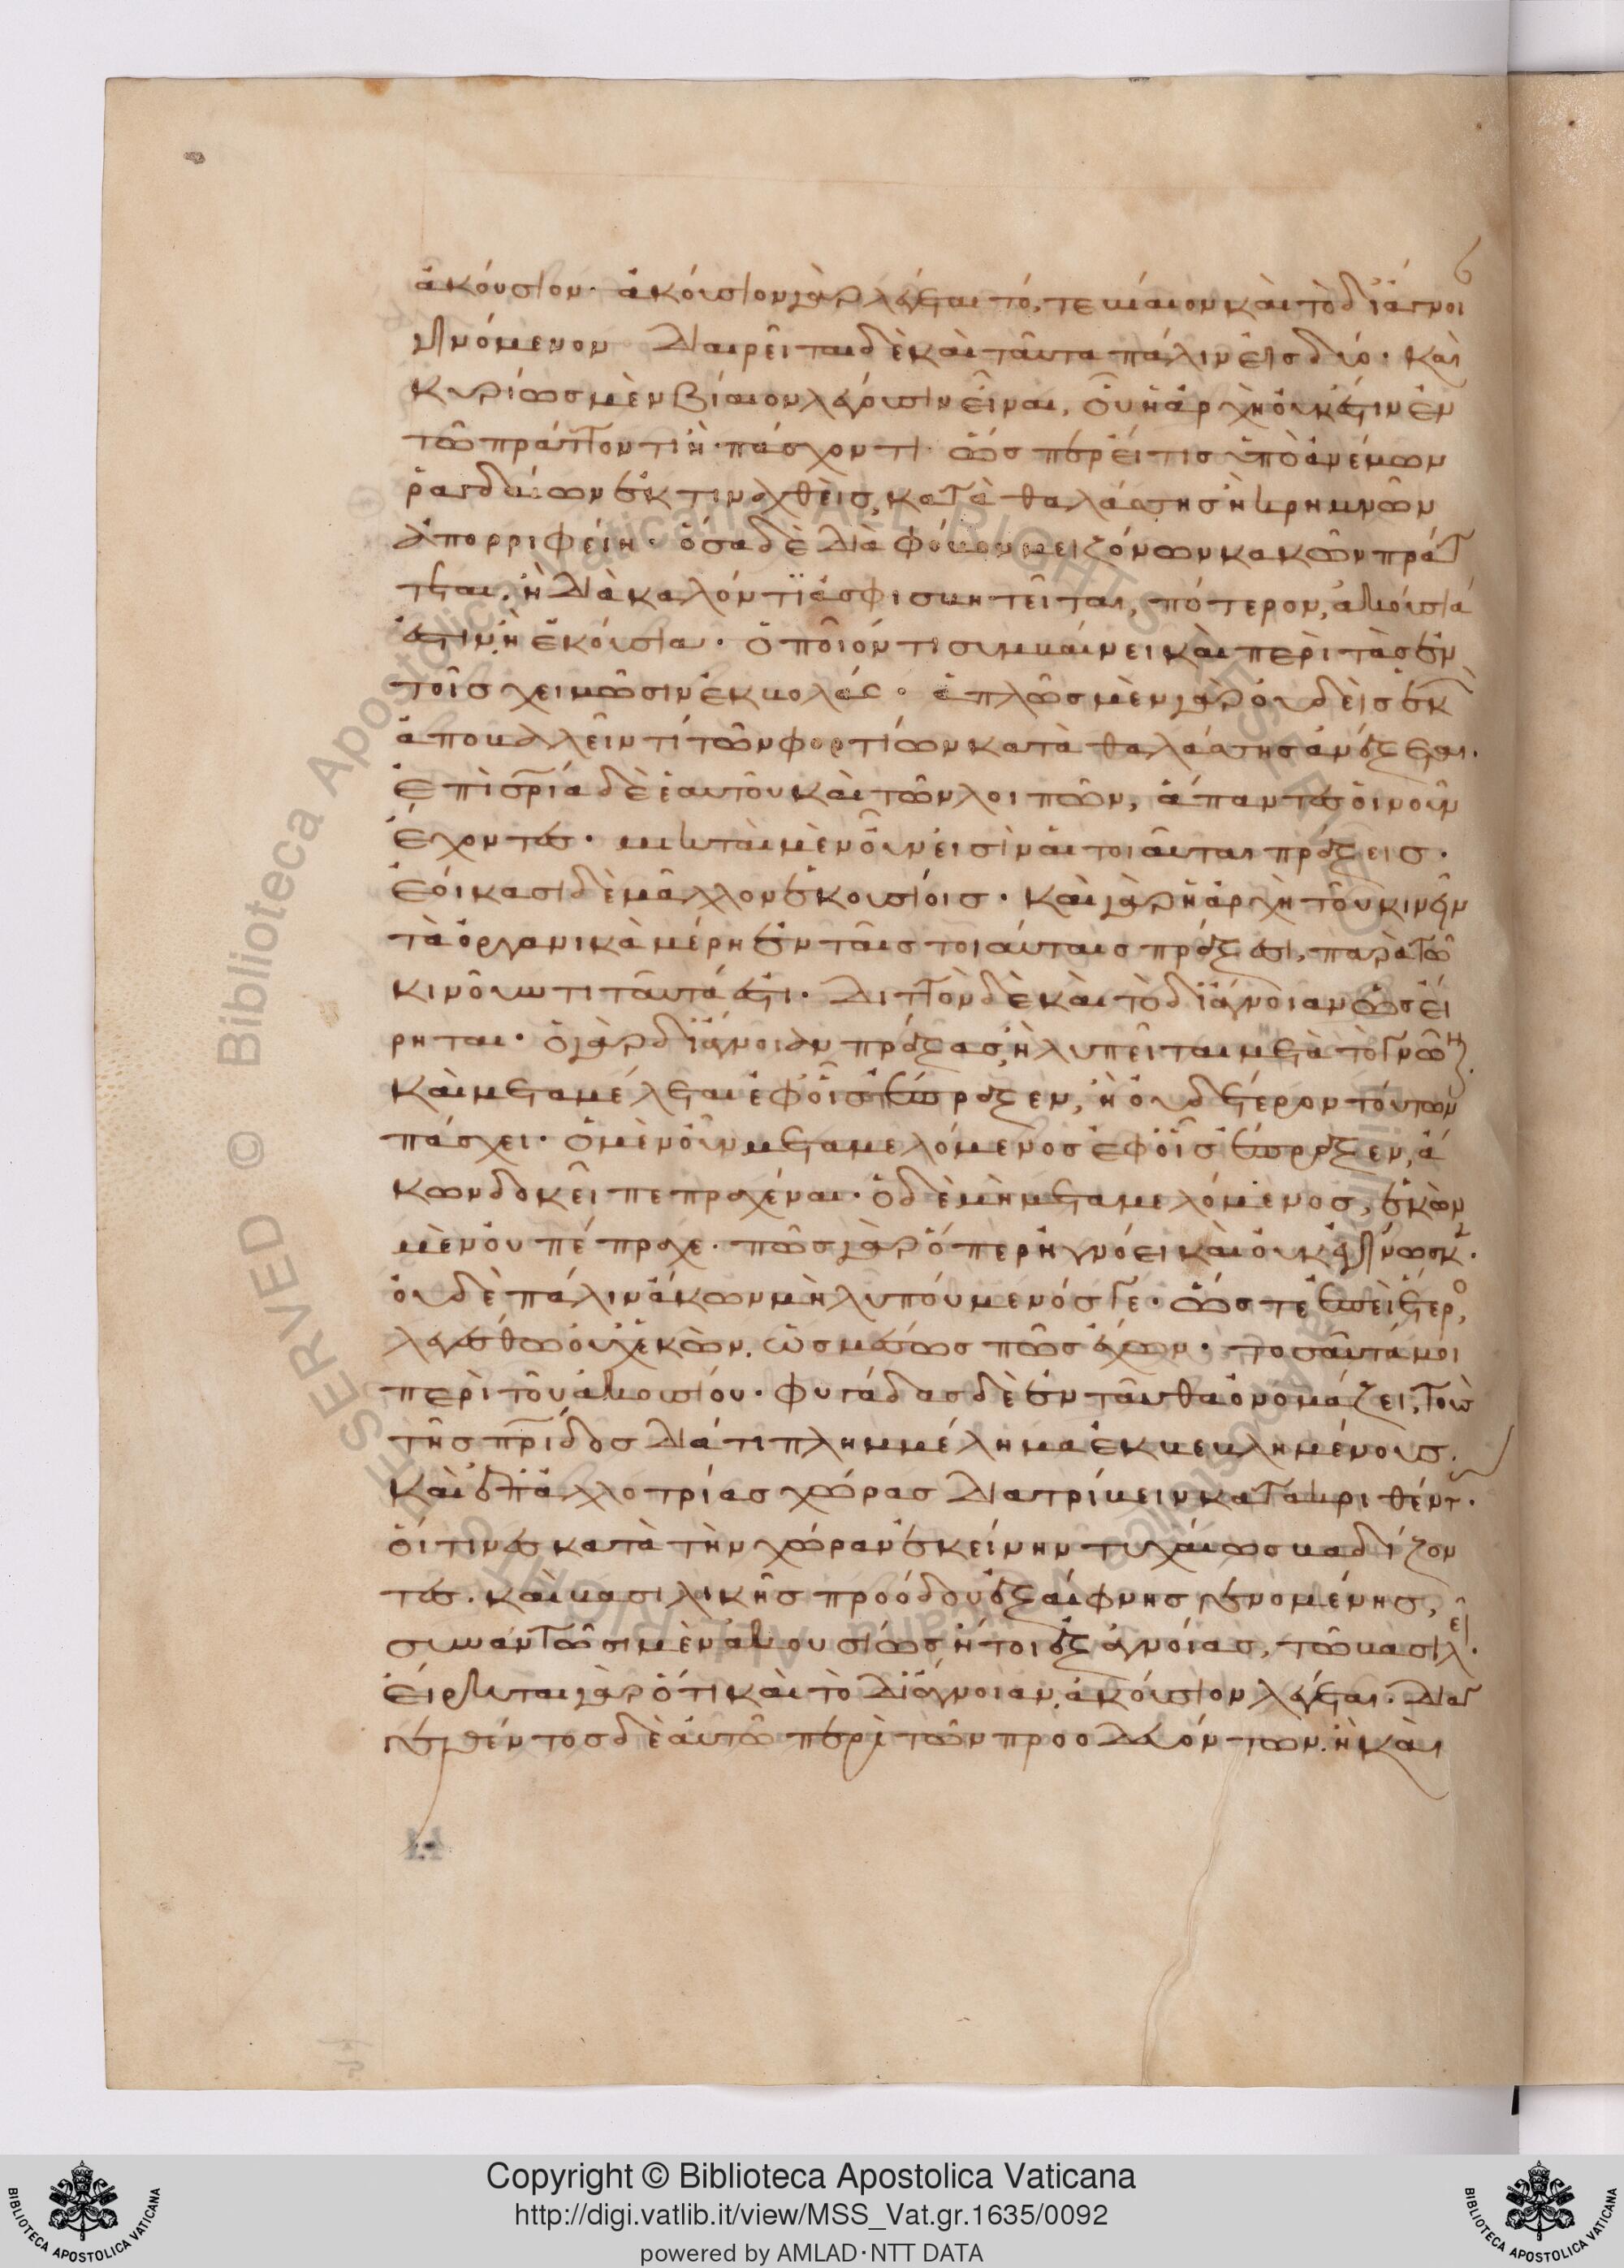 ἀκούσιον· ἀκούσιον γὰρ λέγεται τό, τε βίαιον καὶ τὸ δι᾽ ἄγνοι
γινόμενον Διαιρεῖται δὲ καὶ ταῦτα πάλιν εἰς δύο· καὶ
κυρίως μὲν βίαιον λέγουσιν εἶναι, οὗ ἡ ἀρχὴ οὐκ ἔστιν ἐν
τῶ πράττοντι ἢ πάσχοντι ὥσπερ εἴ τις ὑπὸ ἀνέμων
ῥαγδαίων ἐκτιναχθεὶς, κατὰ θαλάσσης ἢ κρημνῶν
ἀπορριφείη· ὅσα δὲ διὰ φόβον μειζόνων κακῶν πράτ
τεται, ἢ διὰ καλόν τι ἀμφισβητεῖται, πότερον, ἀκούσιά
ἐστιν ἢ ἑκούσια· ὁποῖόν τι συμβαίνει καὶ περὶ τὰς ἐν
τοῖς χειμῶσιν ἐκβολάς· ἁπλῶς μὲν γὰρ οὐδεὶς ἐκ
ἀποβαλεῖν τί τῶν φορτίων κατὰ θαλάσσης ἀνέξεται·
ἐπὶ σρία δὲ ἑαυτοῦ καὶ τῶν λοιπῶν, ἅπαντες οἱ νοῦν
ἔχοντες· μικταὶ μὲν οὖν εἰσὶν αἱ τοιαῦται πράξεις·
ἐοίκασι δὲ μᾶλλον ἑκουσίοις· καὶ γὰρ ἡ ἀρχὴ τοῦ κινεῖν
τὰ ὀργανικὰ μέρη ἐν ταῖς τοιαύταις πράξεσι, παρὰ τῶ
κινοῦντι ταῦτά ἐστι· Διττὸν δὲ καὶ τὸ δι᾽ ἄγνοιαν ὡς εἴ
ρηται· ὁ γὰρ δι᾽ ἄγνοιαν πράξας, ἢ λυπεῖται μετὰ τὸ γνῶν
καὶ μεταμέλεται ἐφ᾽ οἷς ἔπραξεν, ἢ οὐδέτερον τούτων
πάσχει· ὁ μὲν οὖν μεταμελόμενος ἐφ᾽ οἷς ἔπραξεν, ἄ
κων δοκεῖ πεπραχέναι· ὁ δὲ μὴ μεταμελόμενος, ἑκὼν
μὲν οὐ πέπραχε· πῶς γὰρ ὅπερ ἠγνόει καὶ οὐκ ἐγίνωσκ·
οὐδὲ πάλιν ἄκων μὴ λυπούμενός γε· ὥστε ἐπεὶ ἕτερ,
λεγέσθω οὐχ ἑκὼν. ὡς μέσως πῶς ἔχων· τοσαῦτά μοι
περὶ τοῦ ἀκουσίου· φυγάδας δὲ ἐνταῦθα ὀνομάζει, τοὺς
τῆς πρίδος διά τι πλημμέλημα ἐκβεβλημένους.
καὶ ἐπ᾽ ἀλλοτρίας χώρας διατρίβειν κατακριθέντ·
οἵτινες κατὰ τὴν χώραν ἐκείνην τυχαίως βαδίζον
τες. καὶ βασιλικῆς προόδου ἐξαίφνης γενομένης,
συναντῶσι μὲν ἀκουσίως ἤτοι ἐξ ἀγνοίας, τῶ βασιλεῖ.
εἴρηται γὰρ ὅτι καὶ τὸ δι᾽ ἄγνοιαν, ἀκούσιον λέγεται· Διατ
εθέντος δὲ αὐτῶ περὶ τῶν προσ ἢ καὶ
Copyright © Biblioteca Apostolica Vaticana
http://digi.vatlib.it/view/MSS_Vat.gr.1635/0092
powered by AMLAD·NTT DATA